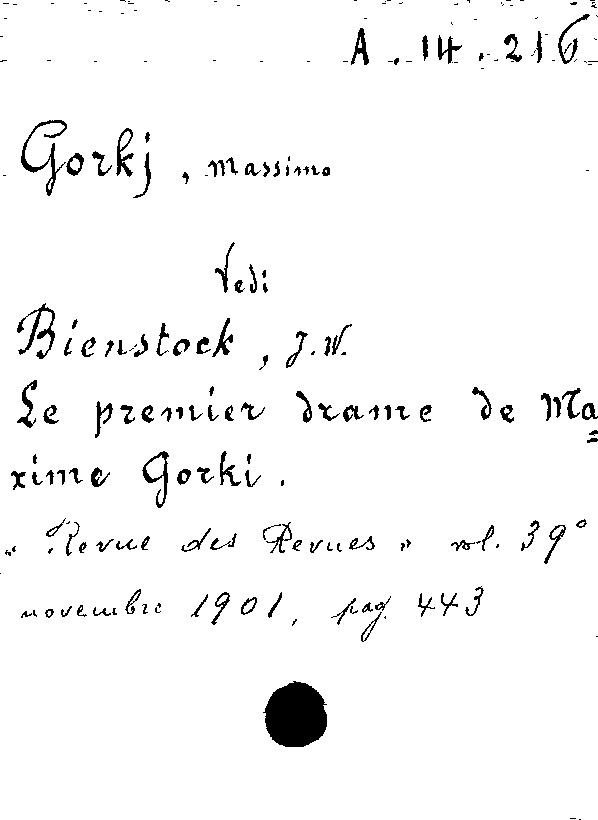 A. 14. 216
Gorkj, Massimo
Vedi
Bienstock, J. W.
Le premier drame de Ma=
xime Gorki.
"Revue des Revues" vol. 39°
novembre 1901, pag. 443